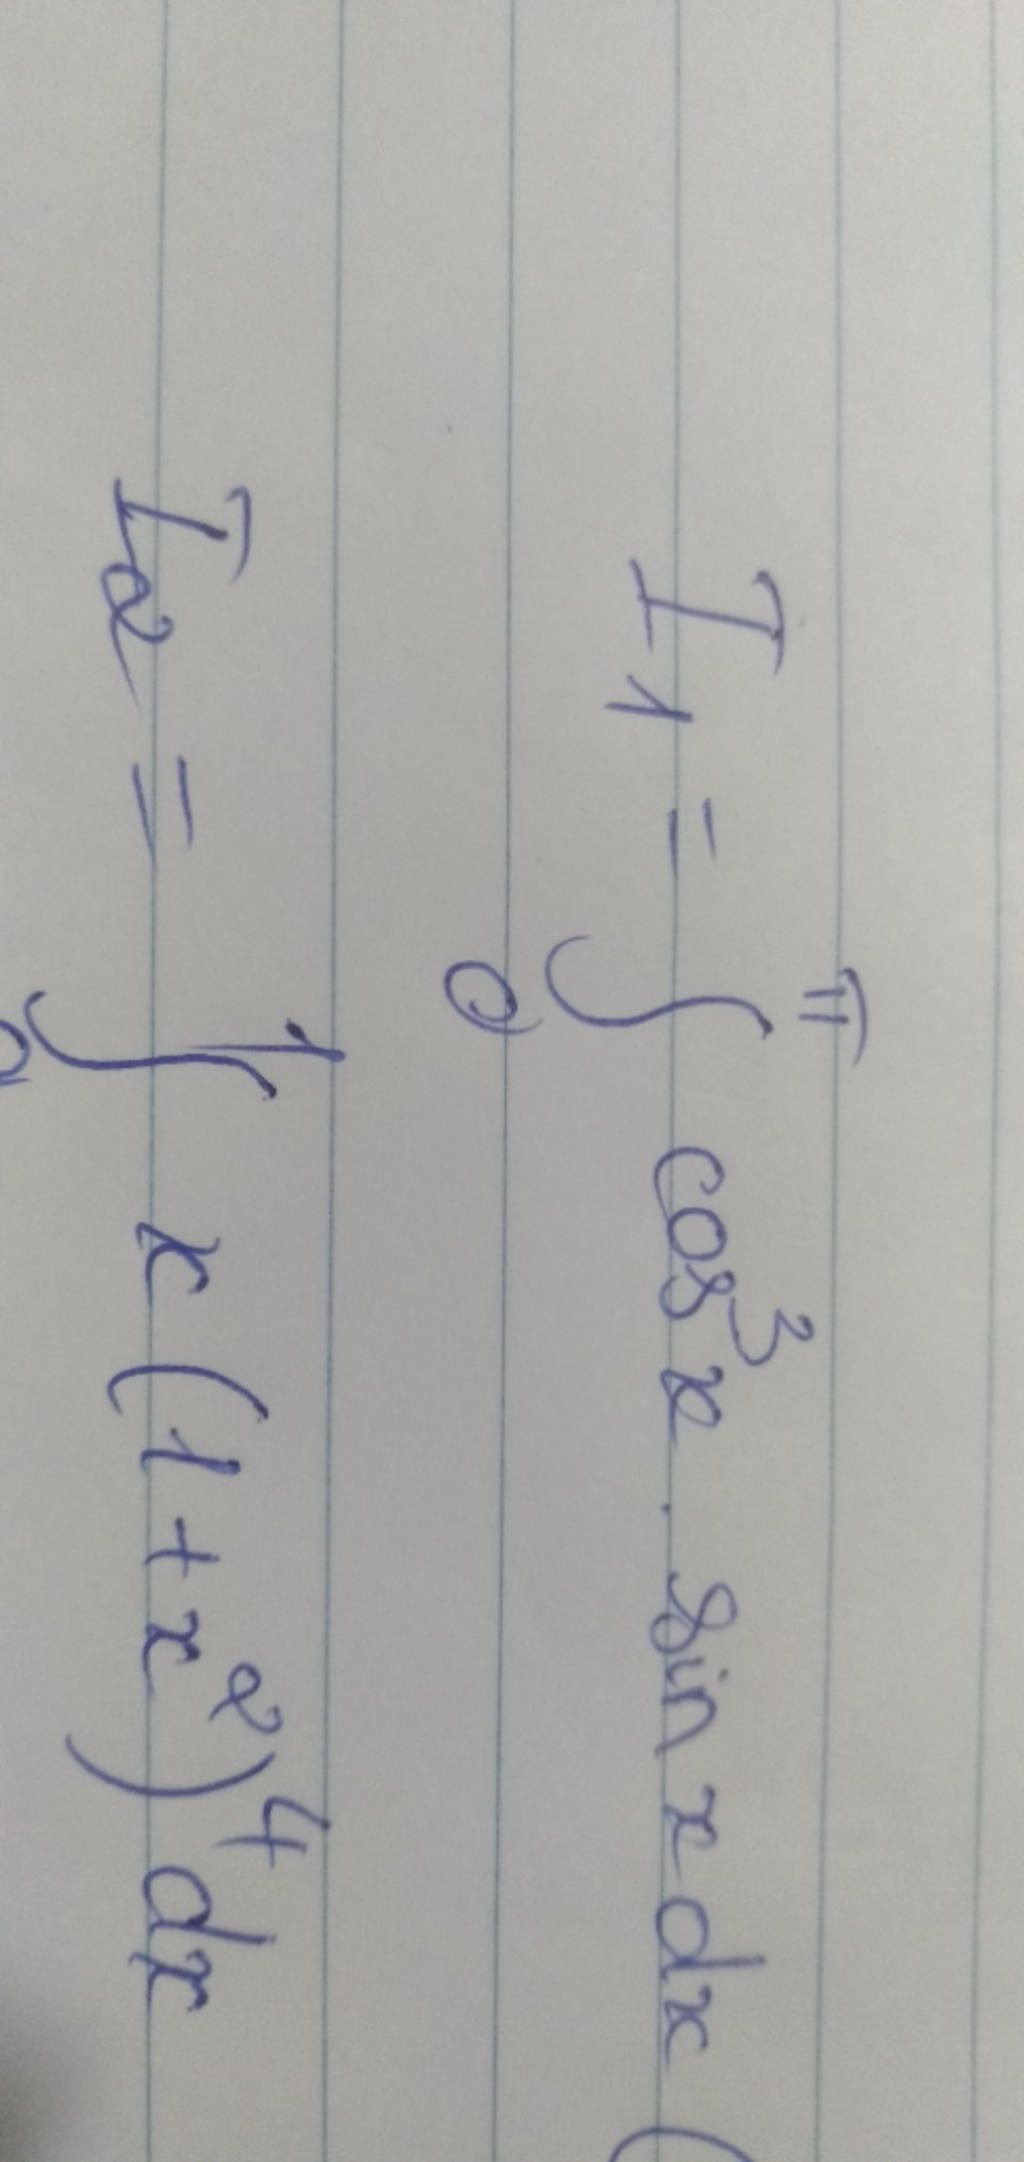 I₁ = ∫₀^π cos³x . sin x dx (
I₂ = ∫₀¹ x (1 + x²)⁴ dx